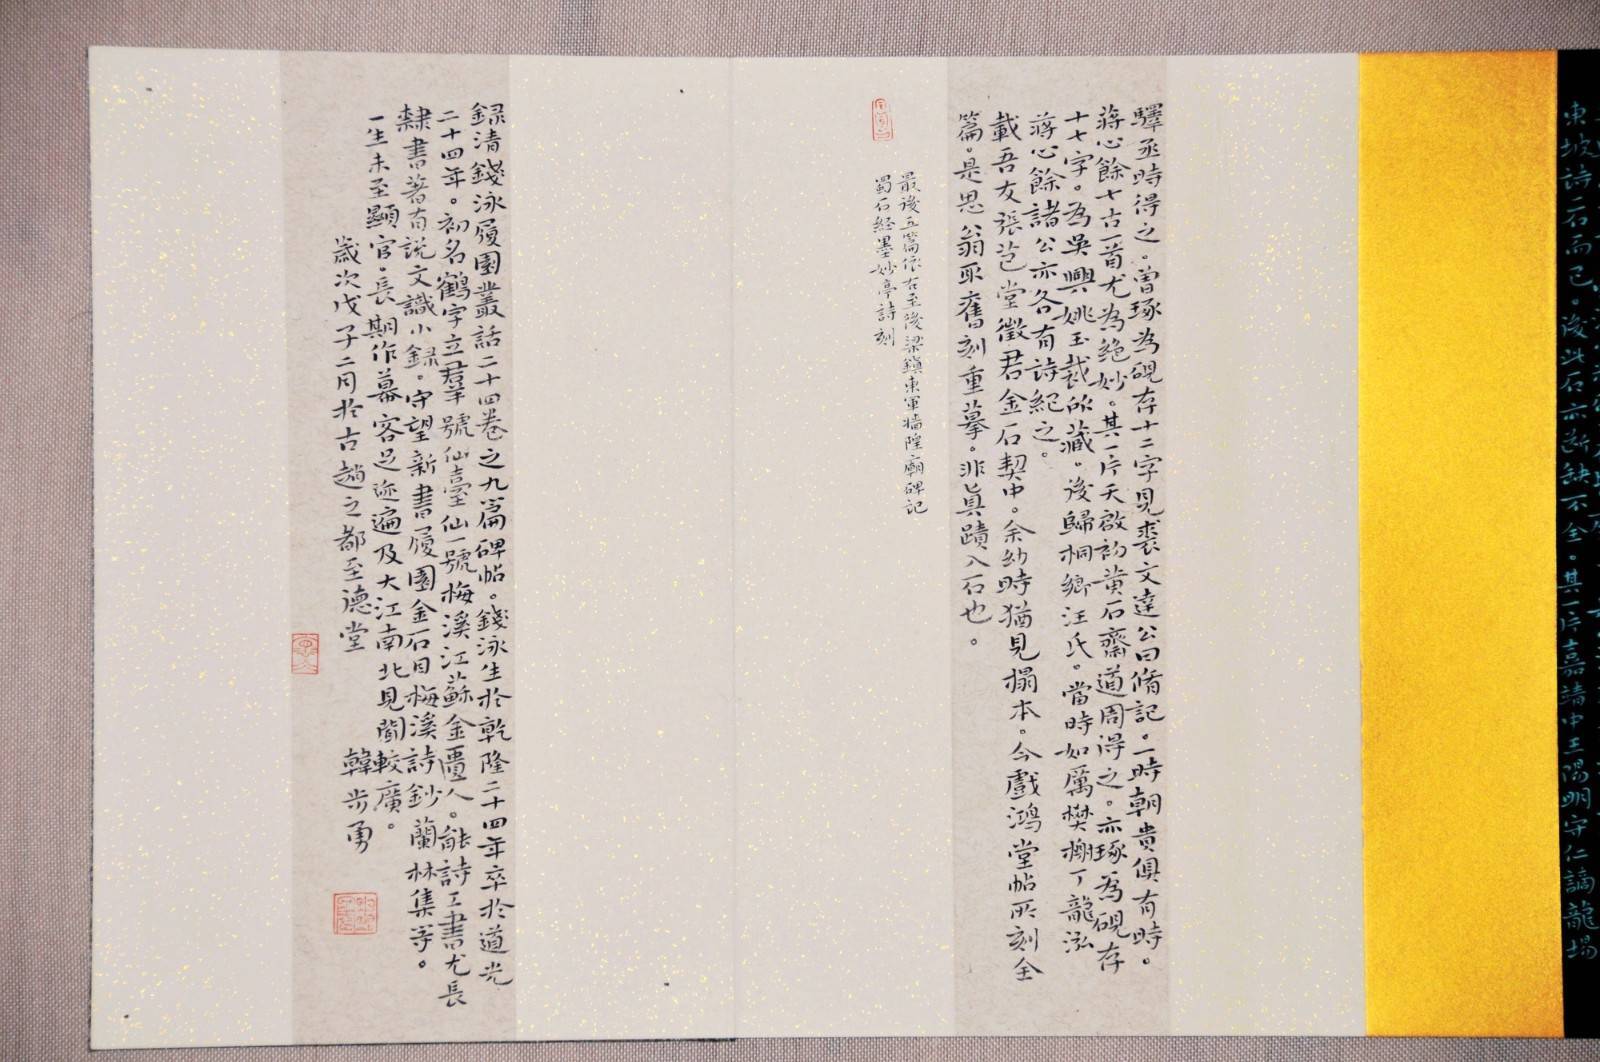 東坡詩二石而已。後此石亦斷缺不全。其一片嘉靖中王陽明守仁謫龍場
驛丞時得之。曾琢為硯存十二字見裘文達公曰脩記。一時朝貴俱有時。
蔣心餘七古一首尤為絕妙。其一片天啟初黃石齋道周得之。亦琢為硯存
十七字。為吳興姚玉裁所藏。後歸桐鄉汪氏。當時如厲樊榭丁龍泓
蔣心餘諸公亦各有詩紀之。
載吾友張芑堂徵君金石契中。余幼時猶見搨本。今戲鴻堂帖所刻全
篇。是思翁取舊刻重摹。非真蹟入石也。
最後五篇依右至後梁鎮東軍牆隍廟碑記
蜀石經墨妙亭詩刻
録清錢泳履園叢話二十四卷之九篇碑帖。錢泳生於乾隆二十四年卒於道光
二十四年。初名鶴字立羣號仙臺仙一號梅溪江蘇金匱人。能詩工書尤長
隸書著有說文識小錄。守望新書履園金石目梅溪詩鈔蘭林集等。
一生未至顯官。長期作幕客足迹遍及大江南北見聞較廣。
歲次戊子二月於古趙之都至德堂 韓步勇